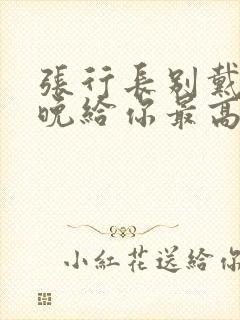 張行長别戴
晚給你最高
小紅花送給你